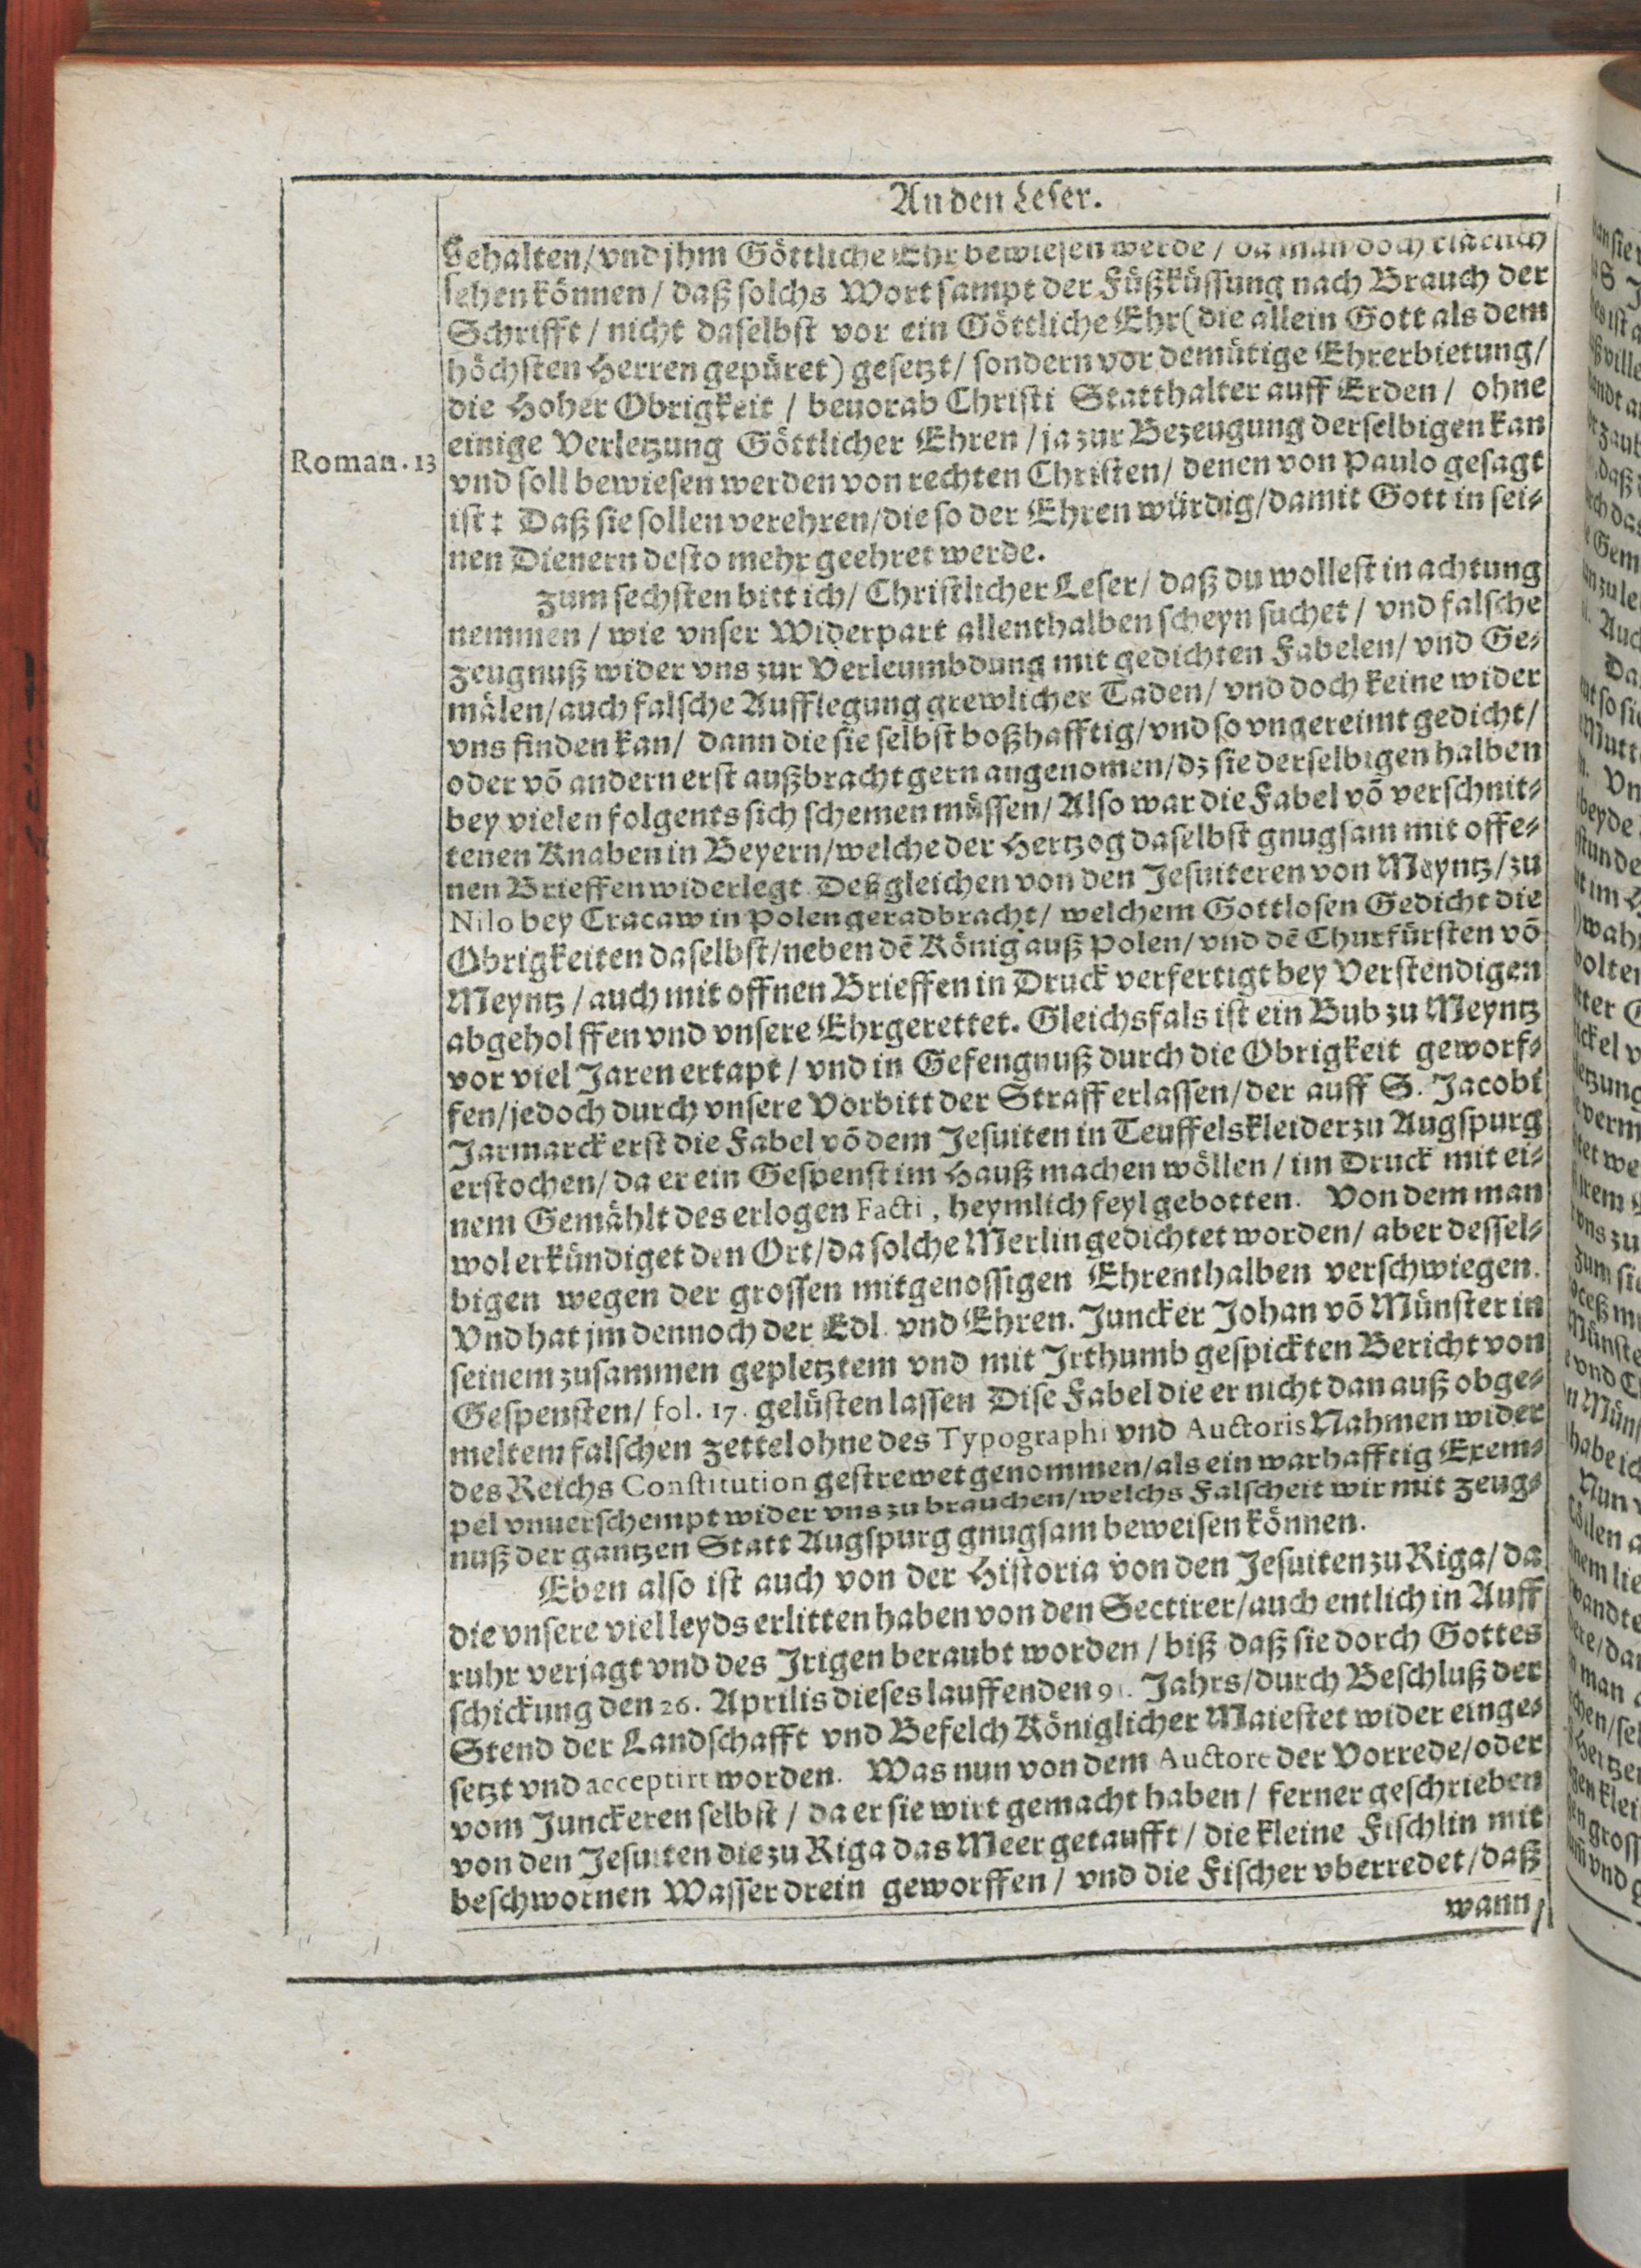 An den Leser.
Gehalten/vnd jhm Göttliche Ehr bewiesen werde / da man doch clärlich
sehen können / daß solchs Wort sampt der Füßküssung nach Brauch der
Schrifft / nicht daselbst vor ein Göttliche Ehr (die allein Gott als dem
höchsten Herren gepüret) gesetzt / sondern vor demütige Ehrerbietung/
die Hoher Obrigkeit / beuorab Christi Statthalter auff Erden / ohne
einige Verletzung Göttlicher Ehren / ja zur Bezeugung derselbigen kan
Roman. 13
vnd soll bewiesen werden von rechten Christen/ denen von Paulo gesagt
ist: Daß sie sollen verehren/die so der Ehren würdig/damit Gott in sei⸗
nen Dienern desto mehr geehret werde.
Zum sechsten bitt ich/ Christlicher Leser/ daß du wollest in achtung
nemmen / wie vnser Widerpart allenthalben scheyn suchet / vnd falsche
Zeugnuß wider vns zur Verleumbdung mit gedichten Fabelen/ vnd Ge⸗
mälen/auch falsche Aufflegung grewlicher Taden/ vnd doch keine wider
vns finden kan/ dann die sie selbst boßhafftig/vnd so vngereimt gedicht/
oder võ andern erst außbracht gern angenomen/dz sie derselbigen halben
bey vielen folgents sich schemen müssen/ Also war die Fabel võ verschnit⸗
tenen Knaben in Beyern/welche der Hertzog daselbst gnugsam mit offe⸗
nen Brieffen widerlegt. Deßgleichen von den Jesuiteren von Meyntz/zu
Nilo bey Cracaw in Polen geradbracht/ welchem Gottlosen Gedicht die
Obrigkeiten daselbst/neben dẽ König auß Polen/vnd dẽ Churfürsten võ
Meyntz / auch mit offnen Brieffen in Druck verfertigt bey Verstendigen
abgeholffen vnd vnsere Ehr gerettet. Gleichsfals ist ein Bub zu Meyntz
vor viel Jaren ertapt / vnd in Gefengnuß durch die Obrigkeit geworf⸗
fen/jedoch durch vnsere Vorbitt der Straff erlassen/der auff S. Jacobi
Jarmarck erst die Fabel võ dem Jesuiten in Teuffelskleider zu Augspurg
erstochen/ da er ein Gespenst im Hauß machen wöllen / im Druck mit ei⸗
nem Gemählt des erlogen Facti, heymlich feyl gebotten. Von dem man
wol erkündiget den Ort/da solche Merlin gedichtet worden/ aber dessel⸗
bigen wegen der grossen mitgenossigen Ehrenthalben verschwiegen.
Vnd hat jm dennoch der Edl. vnd Ehren. Juncker Johan võ Münster in
seinem zusammen gepletztem vnd mit Irthumb gespickten Bericht von
Gespensten/ fol. 17. gelüsten lassen Dise Fabel die er nicht dan auß obge⸗
meltem falschen Zettel ohne des Typographi vnd Auctoris Nahmen wider
des Reichs Constitution gestrewet genommen/als ein warhafftig Exem⸗
pel vnuerschempt wider vns zu brauchen/welchs Falscheit wir mit Zeug⸗
nuß der gantzen Statt Augspurg gnugsam beweisen können.
Eben also ist auch von der Historia von den Jesuiten zu Riga/ da
die vnsere viel leyds erlitten haben von den Sectirer/auch entlich in Auff
ruhr verjagt vnd des Jrigen beraubt worden / biß daß sie dorch Gottes
schickung den 26. Aprilis dieses lauffenden 91. Jahrs/durch Beschluß der
Stend der Landschafft vnd Befelch Königlicher Maiestet wider einge⸗
setzt vnd acceptirt worden. Was nun von dem Auctore der Vorrede/oder
vom Junckeren selbst / da er sie wirt gemacht haben / ferner geschrieben
von den Jesuiten die zu Riga das Meer getaufft / die kleine Fischlin mit
beschwornen Wasser drein geworffen / vnd die Fischer vberredet/daß
wann/